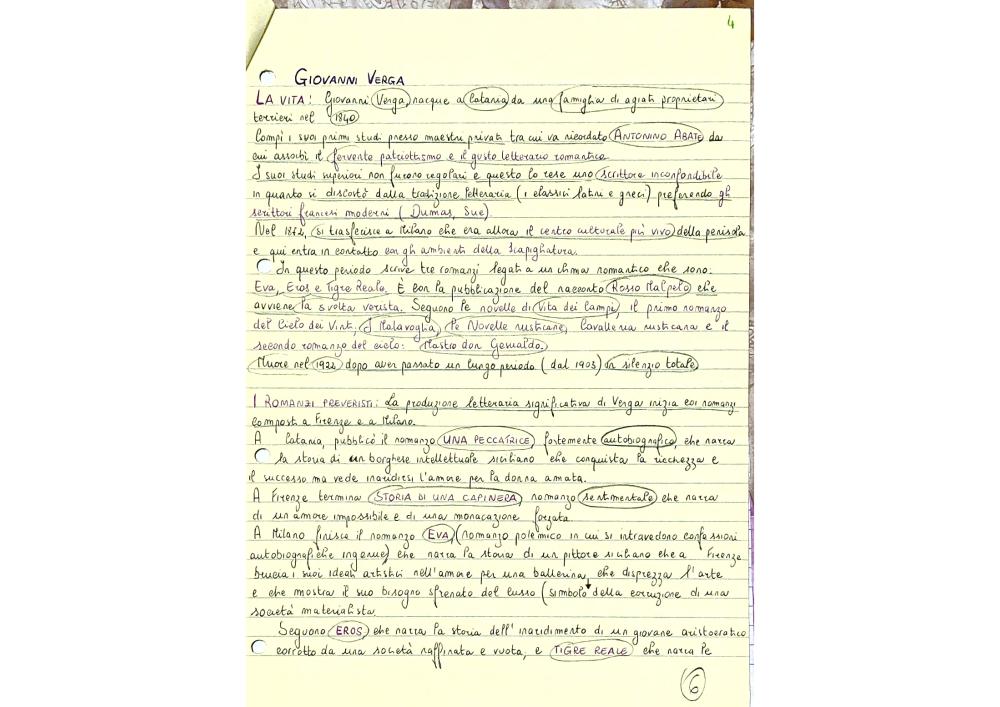 4
GIOVANNI VERGA
LA VITA: Giovanni Verga nacque a Catania da una famiglia di agiati proprietari
terrieri nel 1840
Compì i suoi primi studi presso maestri privati tra cui va ricordato ANTONINO ABATE da
cui assorbì il fervente patriottismo e il gusto letterario romantico.
I suoi studi superiori non furono regolari e questo lo rese uno scrittore inconfondibile
in quanto si discostò dalla tradizione letteraria (i classici latini e greci) preferendo gli
scrittori francesi moderni (Dumas, Sue).
Nel 1872, si trasferisce a Milano che era allora il centro culturale più vivo della penisola
e qui entra in contatto con gli ambienti della Scapigliatura.
In questo periodo scrive tre romanzi legati a un clima romantico che sono:
Eva, Eros e Tigre Reale. È con la pubblicazione del racconto Rosso Malpelo che
avviene la svolta verista. Seguono le novelle di Vita dei Campi, il primo romanzo
del Ciclo dei Vinti, I Malavoglia, le Novelle rusticane, Cavalleria rusticana e il
secondo romanzo del ciclo: Mastro don Gesualdo.
Muore nel 1922 dopo aver passato un lungo periodo (dal 1903) in silenzio totale
I ROMANZI PREVERISTI: La produzione letteraria significativa di Verga inizia coi romanzi
composti a Firenze e a Milano.
A Catania, pubblicò il romanzo UNA PECCATRICE, fortemente autobiografico che narra
la storia di un borghese intellettuale siciliano che conquista la ricchezza e
il successo ma vede inaridirsi l'amore per la donna amata.
A Firenze termina STORIA DI UNA CAPINERA, romanzo sentimentale che narra
di un amore impossibile e di una monacazione forzata.
A Milano finisce il romanzo EVA (romanzo polemico in cui si intravedono confessioni
autobiografiche ingenue) che narra la storia di un pittore siciliano che a Firenze
brucia i suoi ideali artistici nell'amore per una ballerina, che disprezza l'arte
e che mostra il suo bisogno sfrenato del lusso (simbolo della corruzione di una
società materialista.
Seguono EROS che narra la storia dell'inaridimento di un giovane aristocratico
corrotto da una società raffinata e vuota, e TIGRE REALE che narra le
6